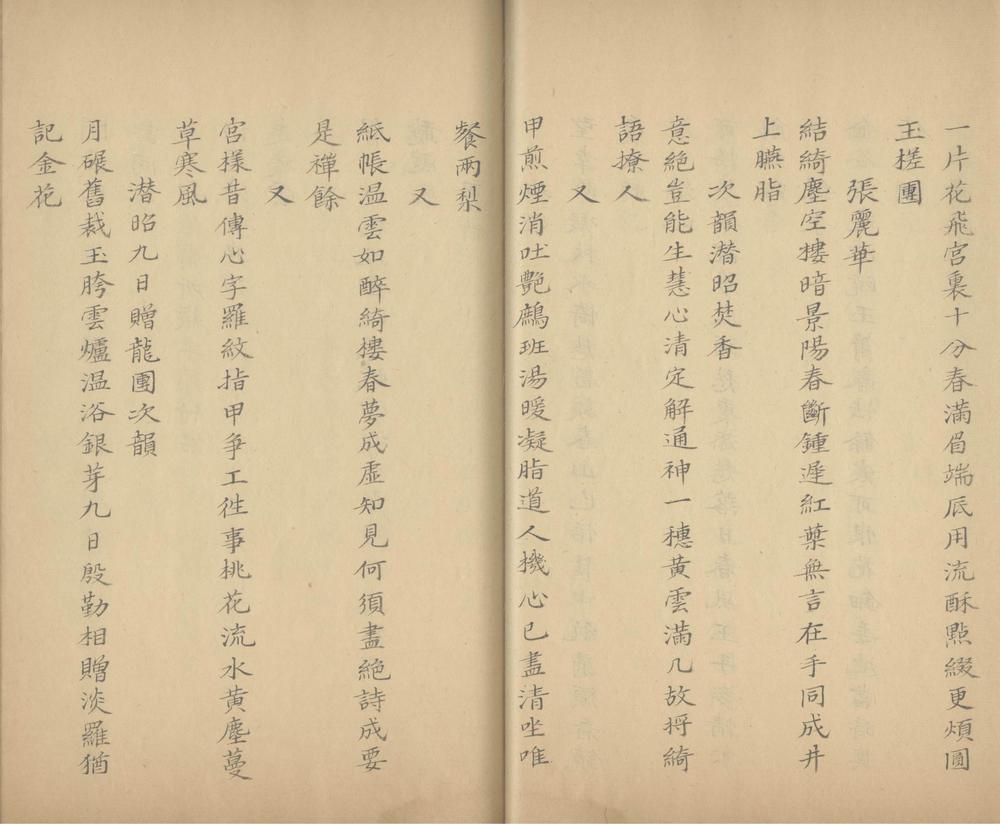 一片花飛宮裏十分春滿眉端底用流酥㸃綴更煩圓
玉槎團
張麗華
結綺塵空摟暗景陽春斷鍾遲紅葉無言在手同成井
上臙脂
次韻潛昭焚香
意絶豈能生慧心清定解通神一穗黃雲滿几故將綺
語撩人
又
甲煎煙消吐艷鷓班湯暖凝脂道人機心已盡清坐唯
餐兩梨
又
紙帳温雲如醉綺樓春夢成虛知見何須盡絶詩成要
是禪餘
又
宮様昔傳心字羅紋指甲爭工徃事桃花流水黃塵蔓
草寒風
潛昭九日贈龍團次韻
月碾舊裁玉胯雲爐温浴銀芽九日殷勤相贈淡羅猶
記金花